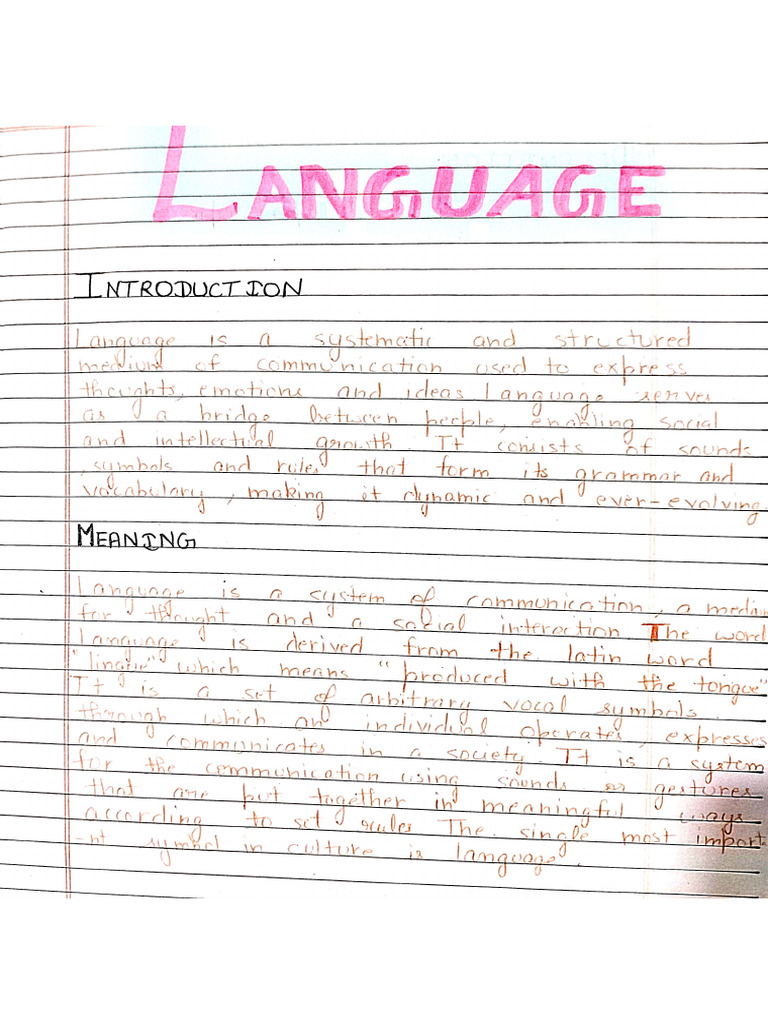 LANGUAGE
INTRODUCTION
Language is a systematic and structured
medium of communication used to express
thoughts, emotions and ideas Language serves
as a bridge between people, enabling social
and intellectual growth. It consists of sounds
, symbols and rules that form its grammar and
vocabulary, making it dynamic and ever-evolving.
MEANING
Language is a system of communication, a medium
for thought and a social interaction The word
Language is derived from the latin word
which means "produced with the tongue"
It is a set of arbitrary vocal symbols.
through which an individual operates, expresses
and communicates in a society. It is a system
for the communication using sounds or gestures
that are put together in meaningful ways
according to set rules The single most import
-nt symbol in culture is language.